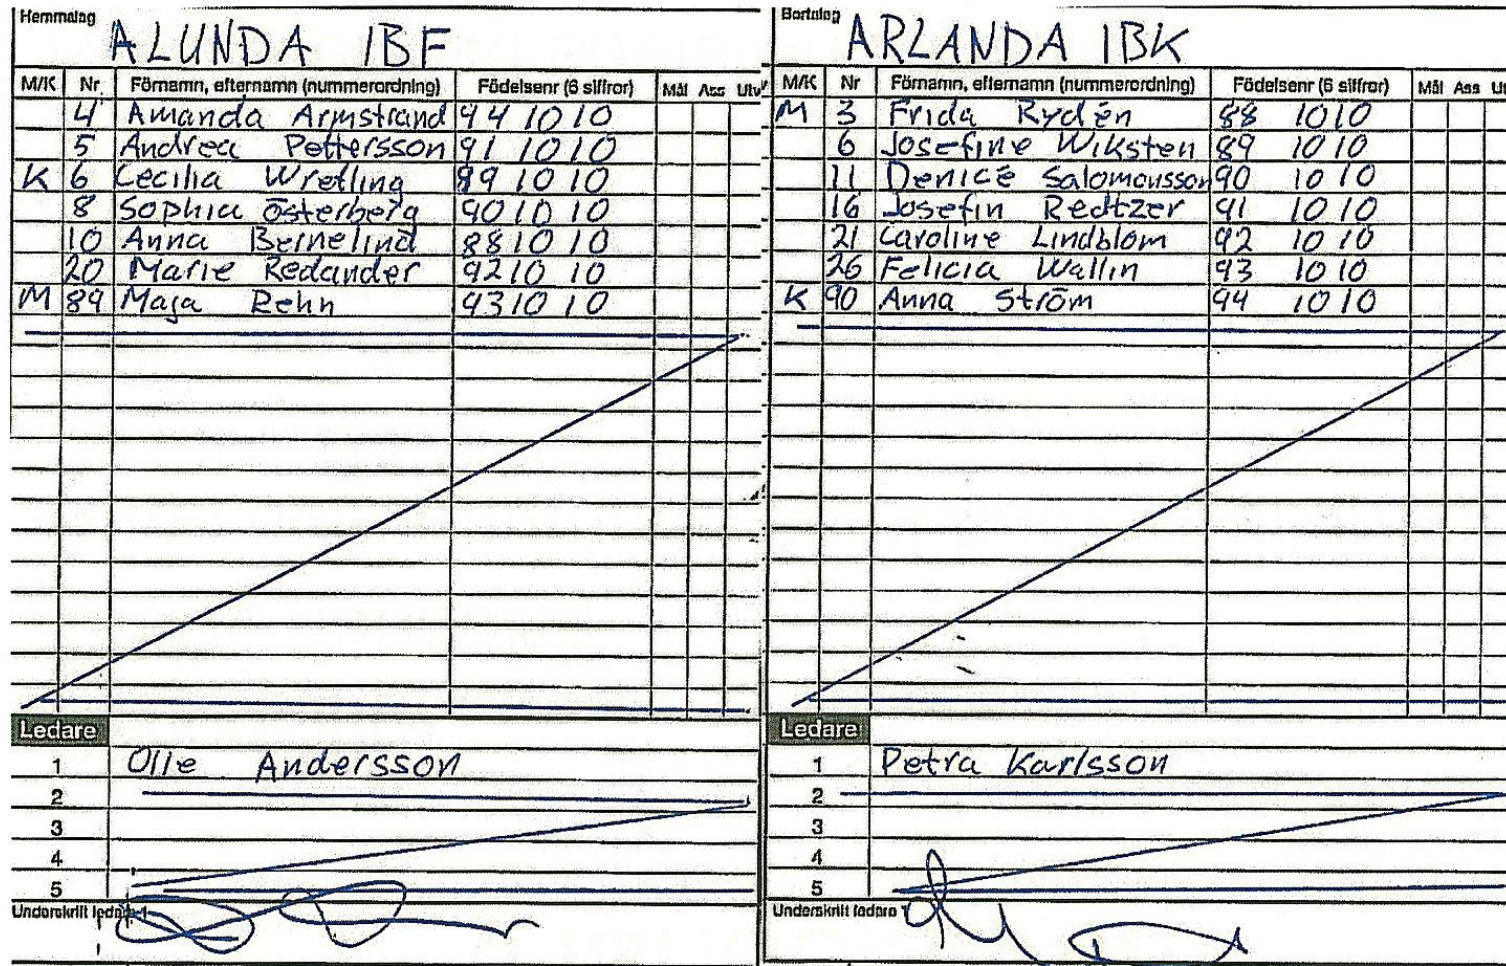 Hemmalag
ALUNDA IBF
M/K Nr Förnamn, efternamn (nummerordning) Födelsenr (6 siffror) Mål Ass Utv
4 Amanda Armstrand 94 10 10
5 Andrea Pettersson 91 10 10
K 6 Cecilia Wretling 89 10 10
8 Sophia Österberg 90 10 10
10 Anna Bernelind 88 10 10
20 Marie Redander 92 10 10
M 89 Maja Rehn 93 10 10
Ledare
1 Olle Andersson
2
3
4
5
Underskrift ledare 1
Bortalag
ARLANDA IBK
M/K Nr Förnamn, efternamn (nummerordning) Födelsenr (6 siffror) Mål Ass Ut
M 3 Frida Rydén 88 10 10
6 Josefine Wiksten 89 10 10
11 Denicé Salomonsson 90 10 10
16 Josefin Redtzer 91 10 10
21 Caroline Lindblom 92 10 10
26 Felicia Wallin 93 10 10
K 90 Anna Ström 94 10 10
Ledare
1 Petra Karlsson
2
3
4
5
Underskrift ledare 1